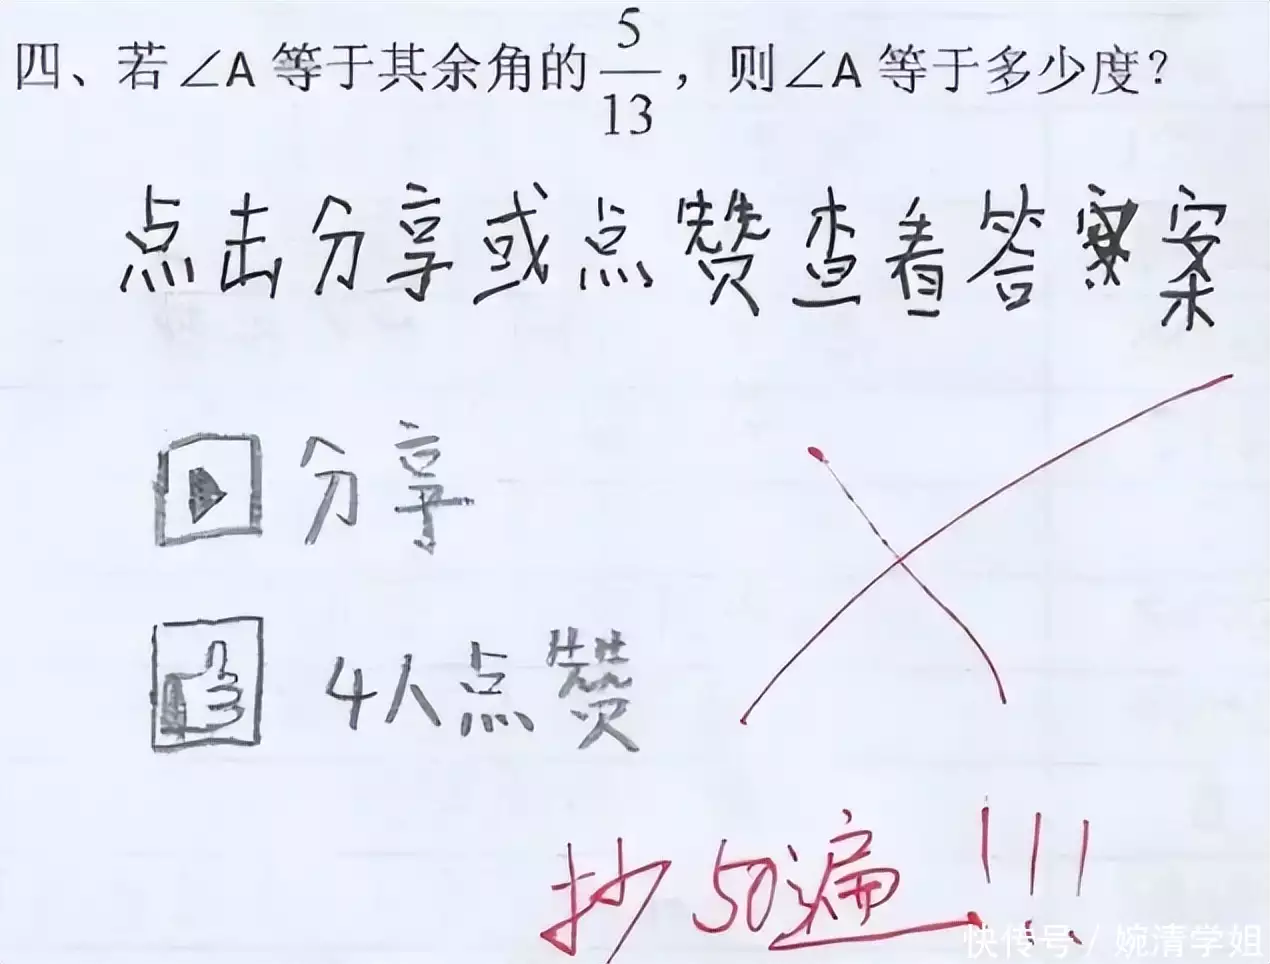 四、若∠A 等于其余角的 5/13，则∠A 等于多少度？
点击分享或点赞查看答案
分享
4人点赞
抄50遍！！！
快传号 / 婉清学姐